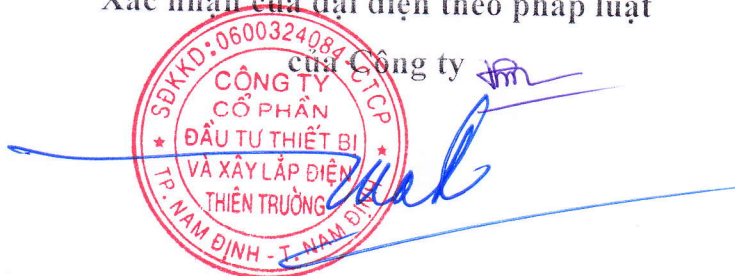 Xác nhận của đại diện theo pháp luật
của Công ty
SĐKKD: 0600324084-CTCP
CÔNG TY
CỔ PHẦN
ĐẦU TƯ THIẾT BỊ
VÀ XÂY LẮP ĐIỆN
THIÊN TRƯỜNG
TP. NAM ĐỊNH - T. NAM ĐỊNH